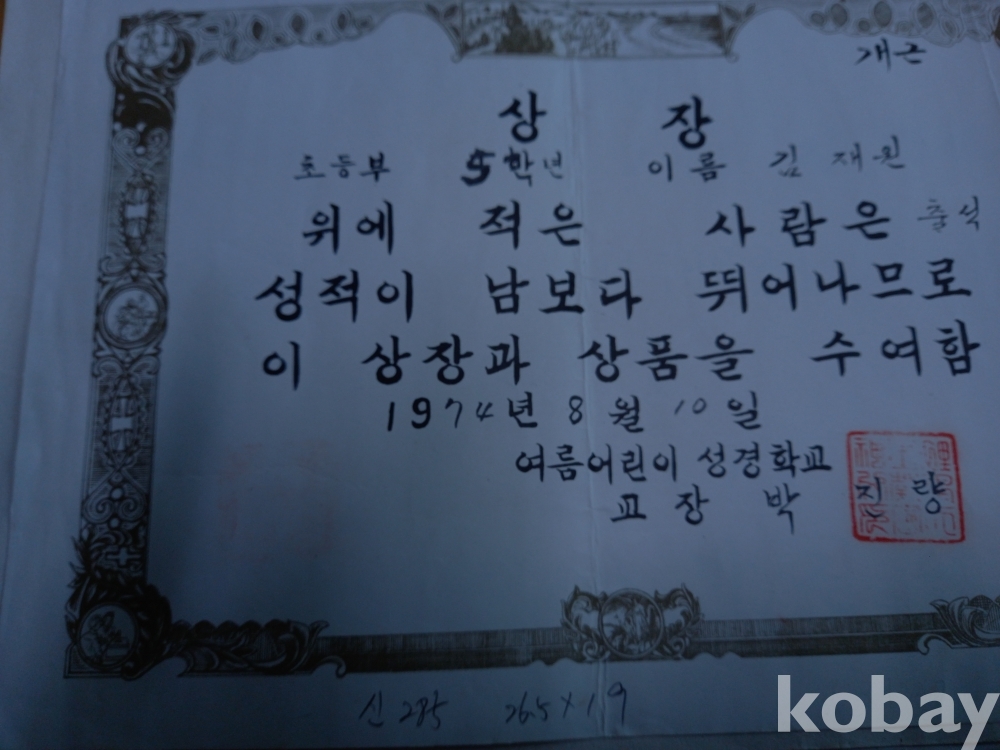 개근
상 장
초등부 5학년 이름 김 재원
위에 적은 사람은 출석
성적이 남보다 뛰어나므로
이 상장과 상품을 수여함
1974년 8월 10일
여름어린이 성경학교
교장 박 지 량
신 285 26.5×19
kobay